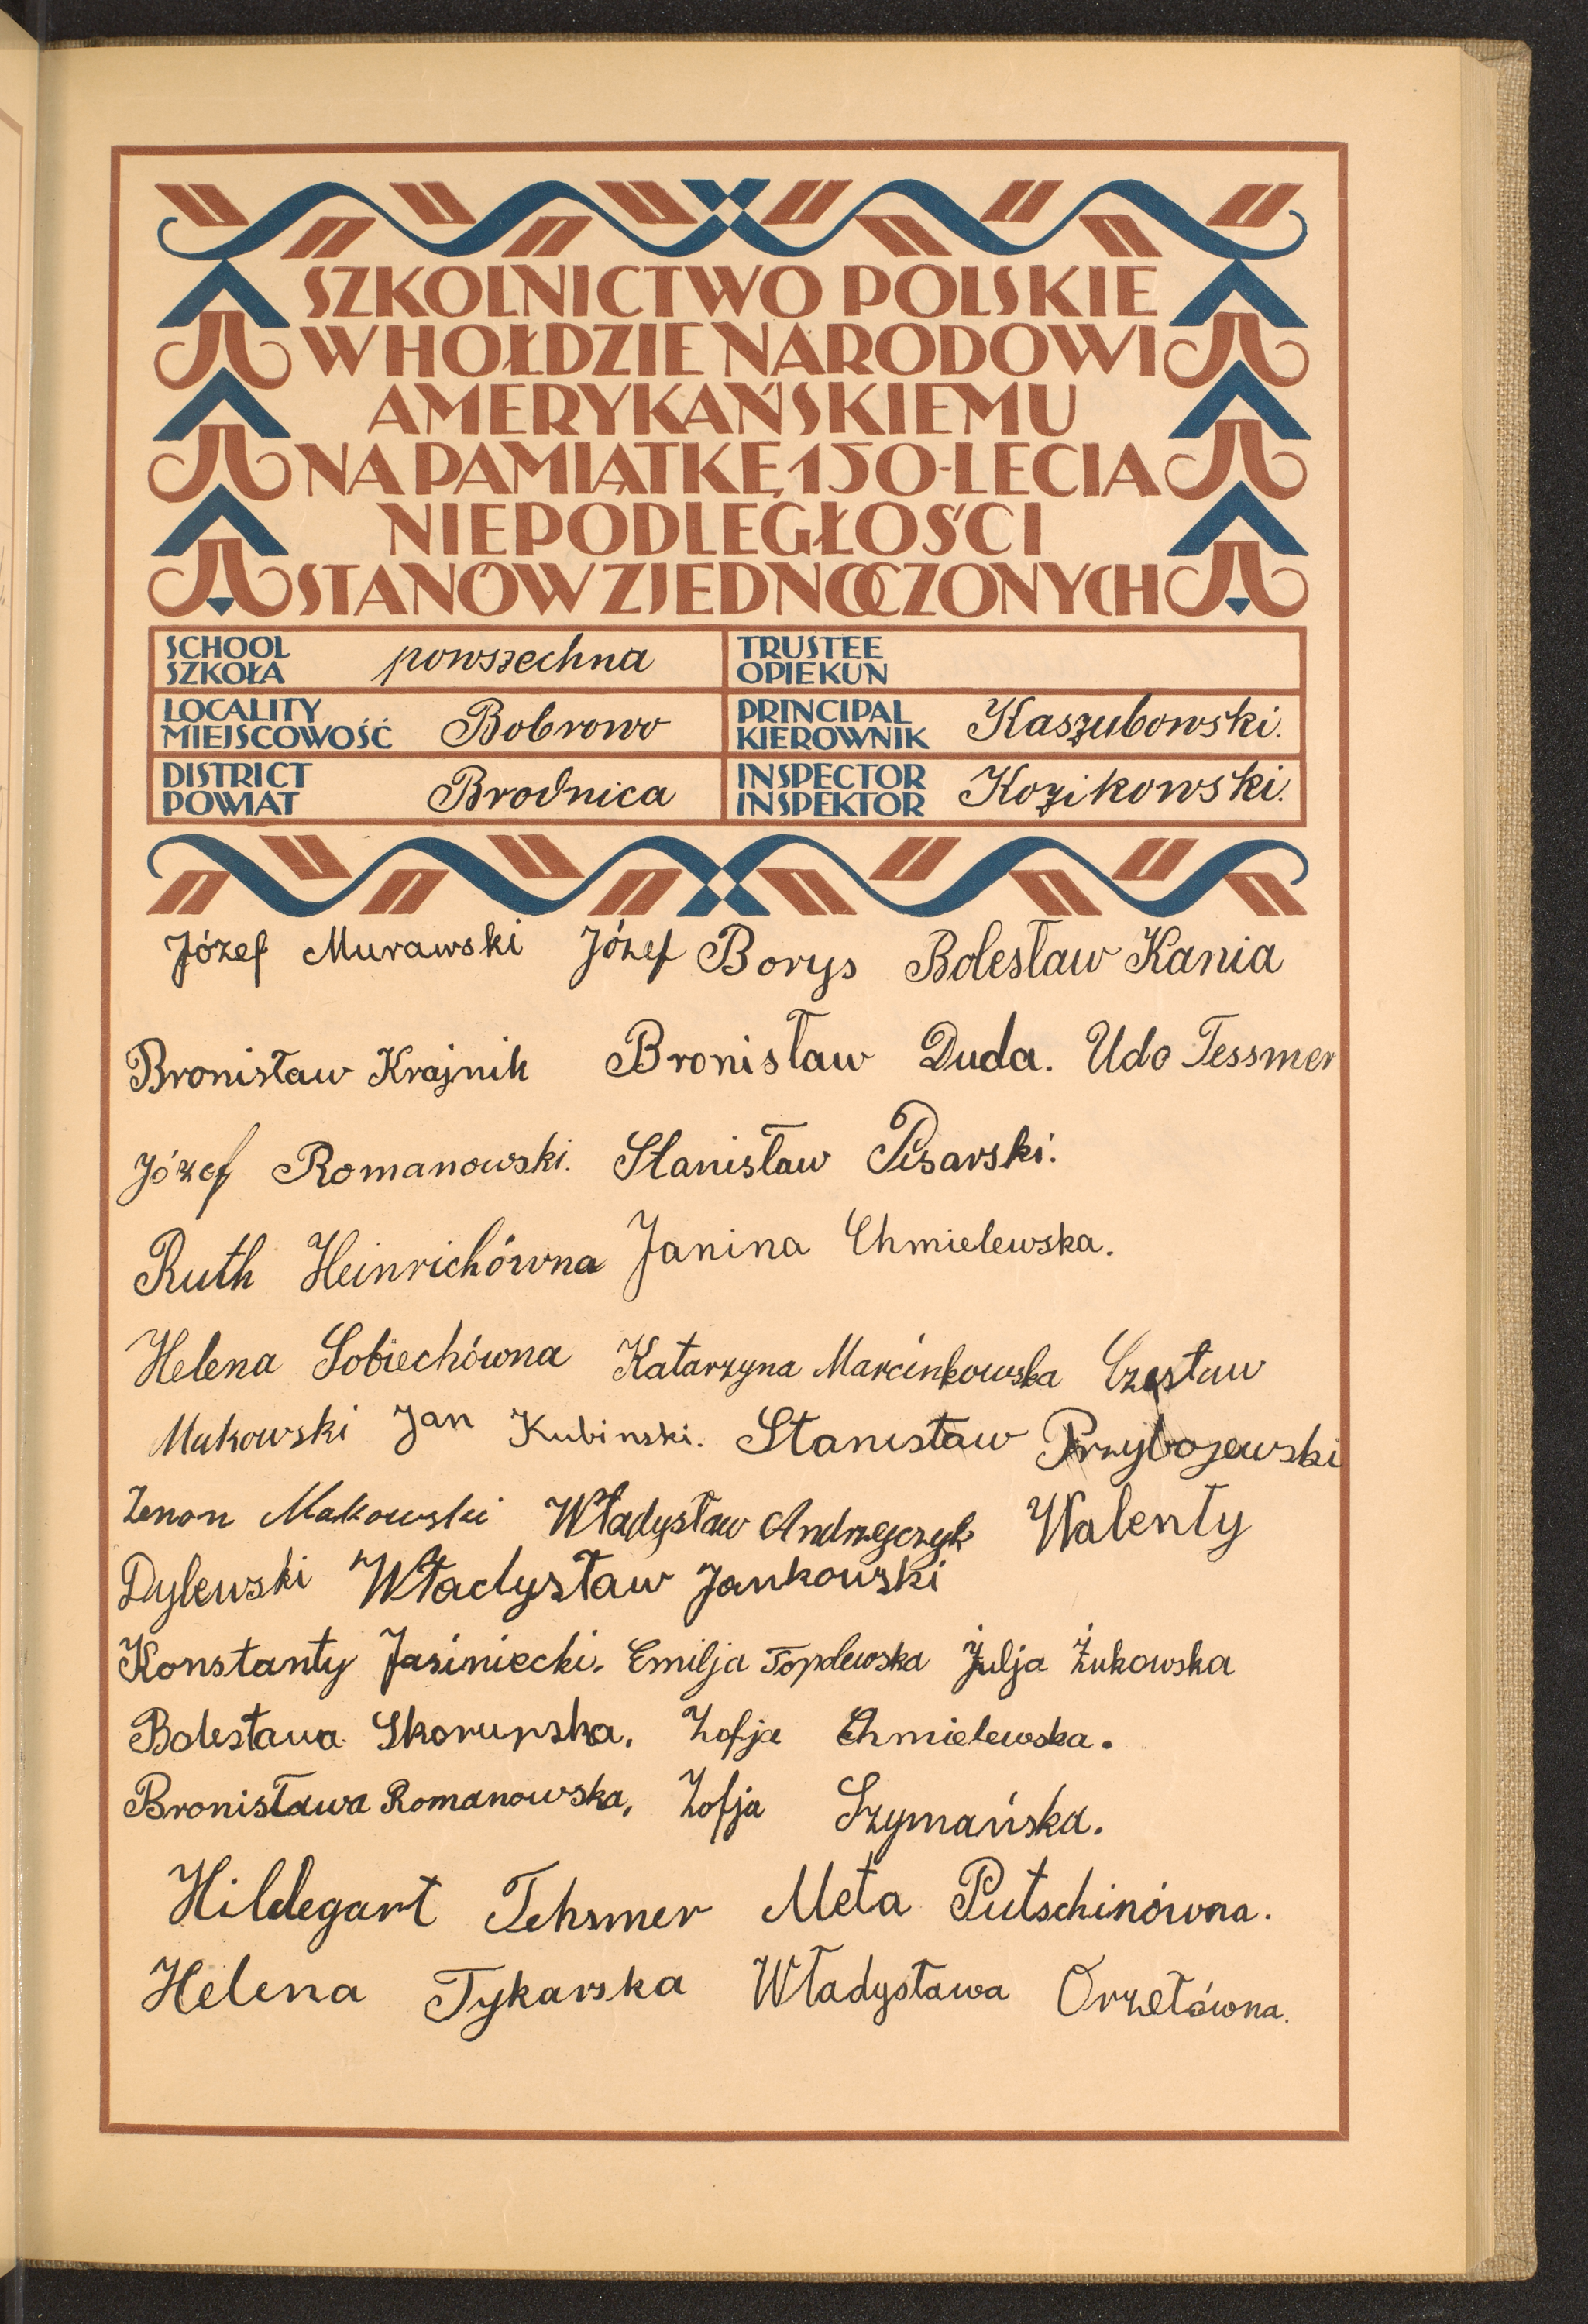 SZKOLNICTWO POLSKIE
W HOŁDZIE NARODOWI
AMERYKAŃSKIEMU
NA PAMIĄTKĘ 150-LECIA
NIEPODLEGŁOŚCI
STANÓW ZJEDNOCZONYCH
SCHOOL
SZKOŁA powszechna
TRUSTEE
OPIEKUN
LOCALITY
MIEJSCOWOŚĆ Bobrowo
PRINCIPAL
KIEROWNIK Kaszubowski.
DISTRICT
POWIAT Brodnica
INSPECTOR
INSPEKTOR Kozikowski.
Józef Murawski Józef Borys Bolesław Kania
Bronisław Krajnik Bronisław Duda. Udo Tessmer
Józef Romanowski. Stanisław Pisarski.
Ruth Heinrichówna Janina Chmielewska.
Helena Sobiechówna Katarzyna Marcinkowska Czesław
Makowski Jan Kubinski. Stanisław Przybojewski
Zenon Makowski Władysław Andrzejczyk Walenty
Dylewski Władysław Jankowski
Konstanty Jasiniecki. Emilja Topolewska Julja Żukowska
Bolesława Skorupska. Zofja Chmielewska.
Bronisława Romanowska, Zofja Szymańska.
Hildegart Tehsmer Meta Putschinówna.
Helena Tykarska Władysława Orzełówna.